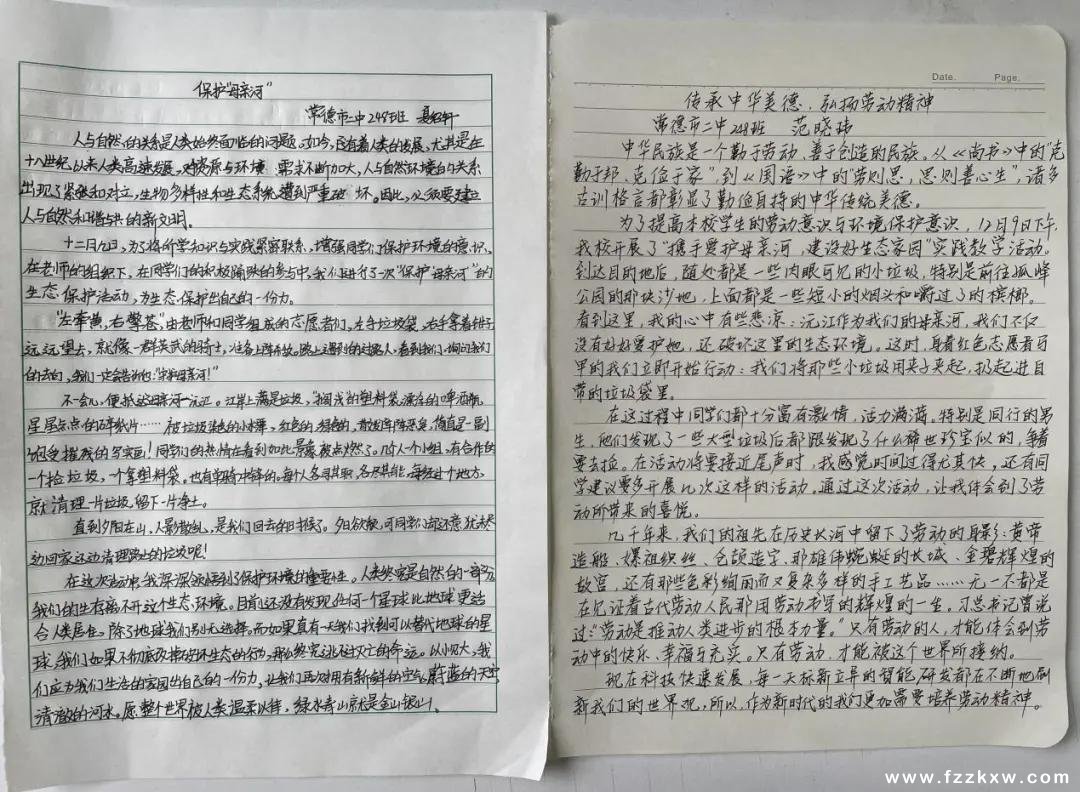 保护“母亲河”
常德市二中248班
人与自然的关系是人类始终面临的问题。如今,随着人类的发展,尤其是在
十八世纪以来人类高速发展,对资源与环境 需求不断加大,人与自然环境的关系
出现了紧张和对立,生物多样性和生态系统遭到严重破坏。因此,必须要建立
人与自然和谐与共的新文明。
十二月九日,为了将所学知识与实践紧密联系,增强同学们保护环境的意识。
在老师的组织下,在同学们的积极踊跃的参与中,我们进行了一次“保护母亲河”的
生态保护活动,为生态保护出自己的一份力。
“左牵黄,右擎苍”,由老师和同学组成的志愿者们,左手垃圾袋,右手拿着钳子
远远望去,就像一群英武的骑士,准备上阵杀敌。路上遇到的过路人,看到我们,询问我们
的去的,我们一定会告诉他:“守护母亲河!”
不一会儿,便抵达母亲河—沅江。江岸上满是垃圾,
星星点点的碎纸片……被垃圾染色的小水滩,红色的,绿色的,散发阵阵恶臭,简直是一副
饱受摧残的写实画!同学们的热情在看到如此景象被点燃了。几个人一个小组,有合作的
一个捡垃圾,一个拿塑料袋。也有单骑冲锋的。每个人各司其职,各尽其能,每经过一个地方,
就清理一片垃圾,留下一片净土。
直到夕阳在山,人影散乱,是我们回去的时候了。夕归欲颓,可同学们却还意犹未尽
动回家还动清理路上的垃圾呢!
在这次活动中,我深深领悟到了保护环境的重要性。人类终究是自然的一部分
我们的生存离不开这个生态环境。目前还没有发现任何一个星球比地球更适
合人类居住。除了地球我们别无选择。而如果真有一天我们找到可以替代地球的星
球,我们如果不彻底改掉破坏生态的行为,那么终究逃不过灭亡的命运。以小见大,我
们应为我们生活的家园出自己的一份力,让我们再次拥有新鲜的空气,蔚蓝的天空
清澈的河水。愿整个世界被人类温柔以待,绿水青山就是金山银山。
Date. Page.
传承中华美德,弘扬劳动精神
常德市二中248班 范晓玮
中华民族是一个勤于劳动、善于创造的民族。从《尚书》中的“克
勤于邦、克俭于家”,到《国语》中的“劳则思,思则善心生”,诸多
古训格言都彰显了勤俭自持的中华传统美德。
为了提高本校学生的劳动意识与环境保护意识,12月9日下午,
我校开展了“携手爱护母亲河,建设好生态家园”实践教学活动。
到达目的地后,随处都是一些肉眼可见的小垃圾,特别是前往孤峰
公园的那块沙地,上面都是一些短小的烟头和嚼过了的槟榔。
看到这里,我的心中有些悲凉:沅江作为我们的母亲河,我们不仅
没有好好爱护她,还破坏这里的生态环境。这时,身着红色志愿者马
甲的我们立即开始行动:我们将那些小垃圾用夹子夹起,扔起进自
带的垃圾袋里。
在这过程中同学们都十分富有激情,活力满满。特别是同行的男
生,他们发现了一些大型垃圾后都跟发现了什么稀世珍宝似的,争着
要去捡。在活动将要接近尾声时,我感觉时间过得尤其快,还有同
学建议要多开展几次这样的活动。通过这次活动,让我体会到了劳
动所带来的喜悦。
几千年来,我们的祖先在历史长河中留下了劳动的身影:黄帝
造船、嫘祖织丝、仓颉造字、那雄伟蜿蜒的长城、金碧辉煌的
故宫,还有那些色彩绚丽而又复杂多样的手工艺品……无一不都是
在见证着古代劳动人民那用劳动书写的辉煌的一生。习总书记曾说
过:“劳动是推动人类进步的根本力量。”只有劳动的人,才能体会到劳
动中的快乐、幸福与充实。只有劳动,才能被这个世界所接纳。
现在科技快速发展,每一天标新立异的智能研发都在不断地刷
新我们的世界观,所以,作为新时代的我们更加需要培养劳动精神。
www.fzzkxw.com